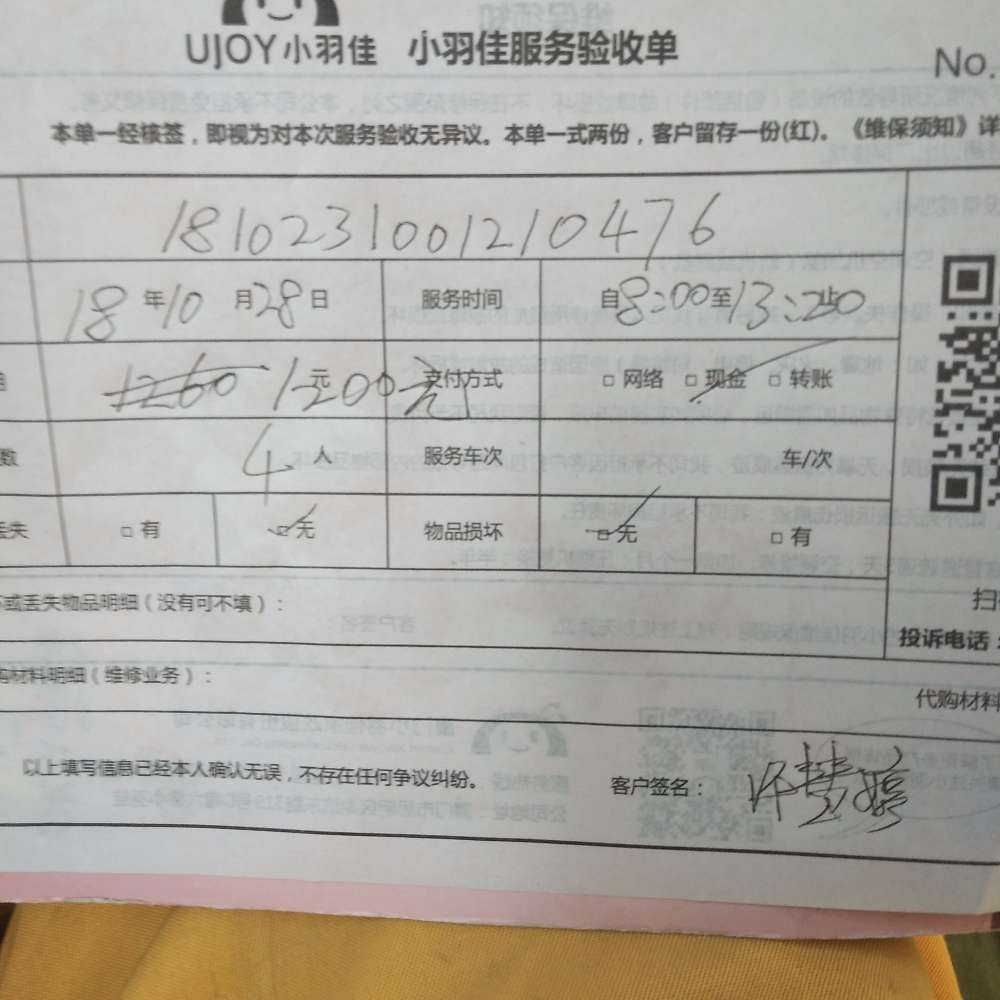 UJOY小羽佳 小羽佳服务验收单
No.
本单一经核签，即视为对本次服务验收无异议。本单一式两份，客户留存一份(红)。《维保须知》详
181023100121 0476
18年10月28日 服务时间 自8:00至13:
1260 1200元 元 支付方式 □ 网络 □ 现金 □ 转账
数 4 服务车次 车/次
丢失 □ 有 □ 无 物品损坏 □ 无 □ 有
坏或丢失物品明细（没有可不填）：
扫
投诉电话：
购材料明细（维修业务）：
代购材料
以上填写信息已经本人确认无误，不存在任何争议纠纷。 客户签名：